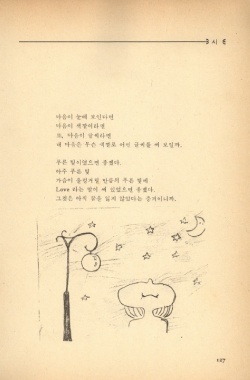 시
마음이 눈에 보인다면
마음이 색깔이라면
또, 마음이 글씨라면
내 마음은 무슨 색깔로 어떤 글씨를 써 보일까.
푸른 빛이었으면 좋겠다.
아주 푸른 빛
가슴이 울렁거릴 만큼의 푸른 빛에
Love 라는 말이 써 있었으면 좋겠다.
그것은 아직 꿈을 잃지 않았다는 증거이니까.
127